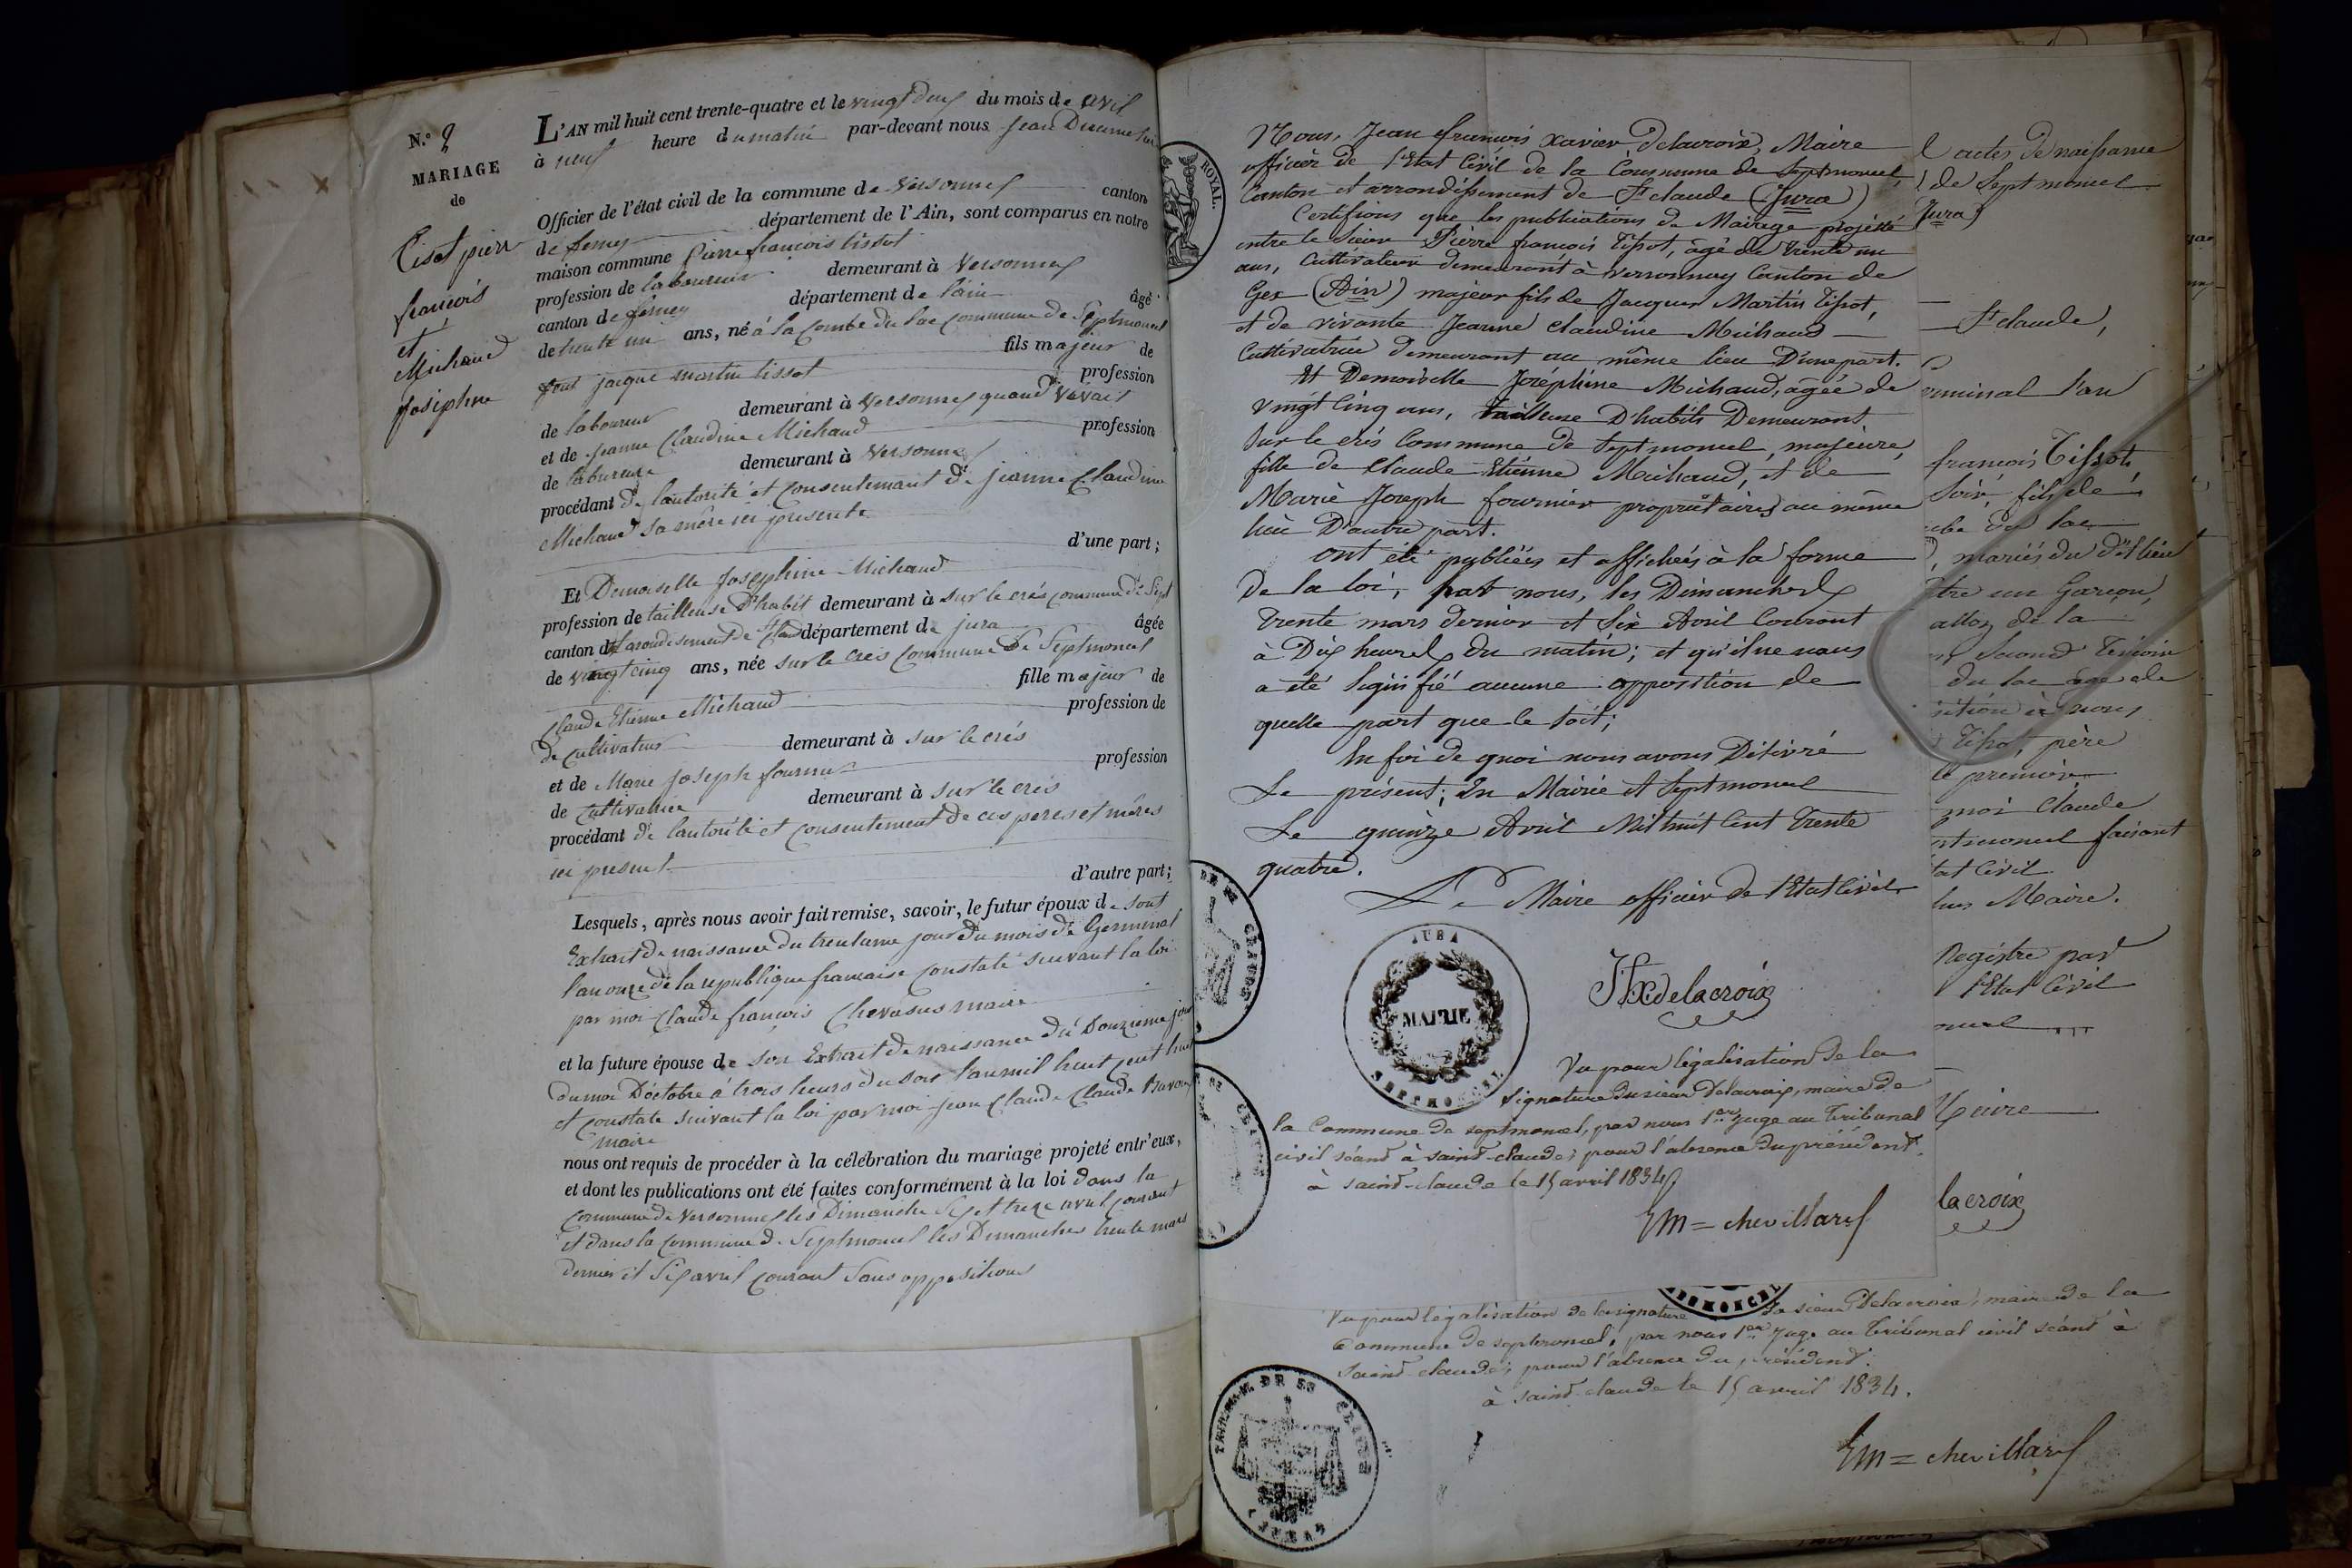 N.° 8
MARIAGE
de
Tisot pierre
francois
et
Michaud
Josephine
L'AN mil huit cent trente-quatre et le vingt deux du mois de avril
à neuf heure du matin par-devant nous Jean
Officier de l'état civil de la commune de Versonnex canton
de ferney département de l'Ain, sont comparus en notre
maison commune Pierre francois tissot
profession de laboureur demeurant à Versonnex
canton de ferney département de l'ain âgé
de trente un ans, né á la Combe du lac commune de Septmoncel
fils majeur de
feut jacque martin tissot profession
de laboureur demeurant à Versonnex quand vivait
et de jeanne Claudine Michaud profession
de labureuse demeurant à Versonnex
procédant de lautorité et consentemant de jeanne Claudine
Michaud sa mère ici presente
d'une part ;
Et Demoiselle Josephine Michaud
profession de tailleuse D'habit demeurant à sur le crés commune de Sept
canton de larondisement de St Claud département de jura âgée
de vingt cinq ans, née sur le Crés Commune De Septmoncel
fille majeur de
Claude Etienne Michaud profession de
de cultivateur demeurant à sur le crés
et de Marie joseph fournier profession
de cultivatrice demeurant à sur le crés
procédant de lautorité et consentement de ces peres et mères
ici present
d'autre part ;
Lesquels, après nous avoir fait remise, savoir, le futur époux de sont
Extrait de naissance du trentieme jour du mois de Germinal
lan onze de la republique francaise constaté suivant la loi
par moi Claude francois Chevassus maire
et la future épouse de son Extrait de naissance du Douzieme jour
du moi D'octobre á trois heures du soir lan mil huit cent huit
et constate suivant la loi par moi jean Claude Claude
maire
nous ont requis de procéder à la célébration du mariage projeté entr'eux,
et dont les publications ont été faites conformément à la loi dans la
commune de Versonnex les Dimanche Six et treze avril courant
et dans la commune de Septmoncel les Dimanches trente mars
dernier et Six avril courant Sans oppositions
ROYAL.
Nous, Jean francois Xavier Delacroix, Maire
officier de l'Etat Civil de la Commune de Septmoncel,
Canton et arrondissement de St claude (Jura)
Certifions que les publications de Mairage projetté
entre le Sieur Pierre francois Tissot, âgé de trente un
ans, Cultivateur demeurant à versonnay Canton de
Gex (Ain) majeur fils de Jacques Martin Tissot,
et de vivante Jeanne Claudine Michaud
Cultivatrice demeurant au même lieu D'une part.
Et Demoiselle Joséphine Michaud, âgée de
vingt Cinq ans, tailleuse D'habits Demeurant
Sur le crés Commune de Septmoncel, majeure,
fille de Claude Etienne Michaud, et de
Marie Joseph fournier propriétaires au même
lieu D'autre part.
ont été publiées et affichées à la forme
De la loi, par nous, les Dimanches
trente mars dernier et Six Avril Courant
à Dix heures du matin; et qu'il ne nous
a été Signifié aucune opposition de
quelle part que le soit;
En foi de quoi nous avons Délivré
Le présent; En Mairie à Septmoncel
Le quinze Avril Mil huit Cent trente
quatre.
Le Maire officier de l'Etat Civil
JURA
MAIRIE
SEPTMONCEL
JfX delacroix
Vu pour légalisation De la
Signature du sieur Delacroix, maire de
la Commune de septmoncel, par nous 1er juge au Tribunal
civil séant à saint-claude; pour l'absence du président.
à saint-claude le 15 avril 1834.
Em = chevillard
actes de naissance
de Septmoncel
(Jura)
St claude,
germinal l'an
francois Tissot,
Soir, fils de
du lac
mariés du dit lieu
être un Garçon,
de la
Second Témoin
du lac âgé de
à nous
Tissot, père
le premier
moi Claude
Septmoncel faisant
Etat Civil
Maire.
Registre par
l'Etat Civil
lacroix
Vu pour légalisation de la signature du sieur Delacroix, maire de la
Commune de septmoncel, par nous 1er juge au Tribunal civil séant à
Saint-claude; pour l'absence du président.
à saint-claude le 15 avril 1834.
Em = chevillard